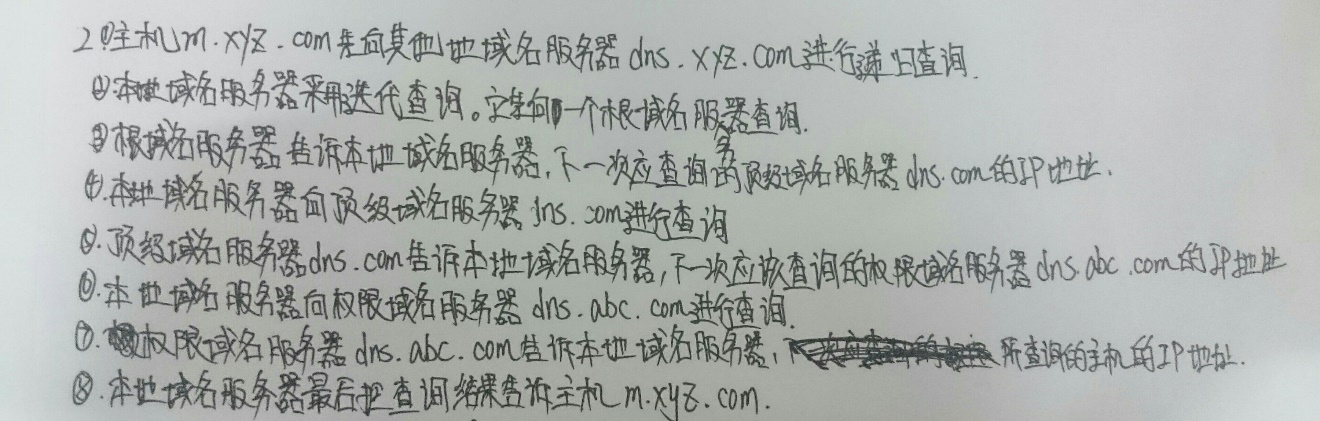 2①主机m.xyz.com先向其他地域名服务器dns.xyz.com进行递归查询.
②本地域名服务器采用迭代查询。它先向一个根域名服务器查询.
③根域名服务器告诉本地域名服务器,下一次应查询的顶级域名服务器dns.com的IP地址.
④.本地域名服务器向顶级域名服务器dns.com进行查询
⑤.顶级域名服务器dns.com告诉本地域名服务器,下一次应该查询的权限域名服务器dns.abc.com的IP地址
⑥.本地域名服务器向权限域名服务器dns.abc.com进行查询.
⑦.权限域名服务器dns.abc.com告诉本地域名服务器,所查询的主机的IP地址.
⑧.本地域名服务器最后把查询结果告诉主机m.xyz.com.